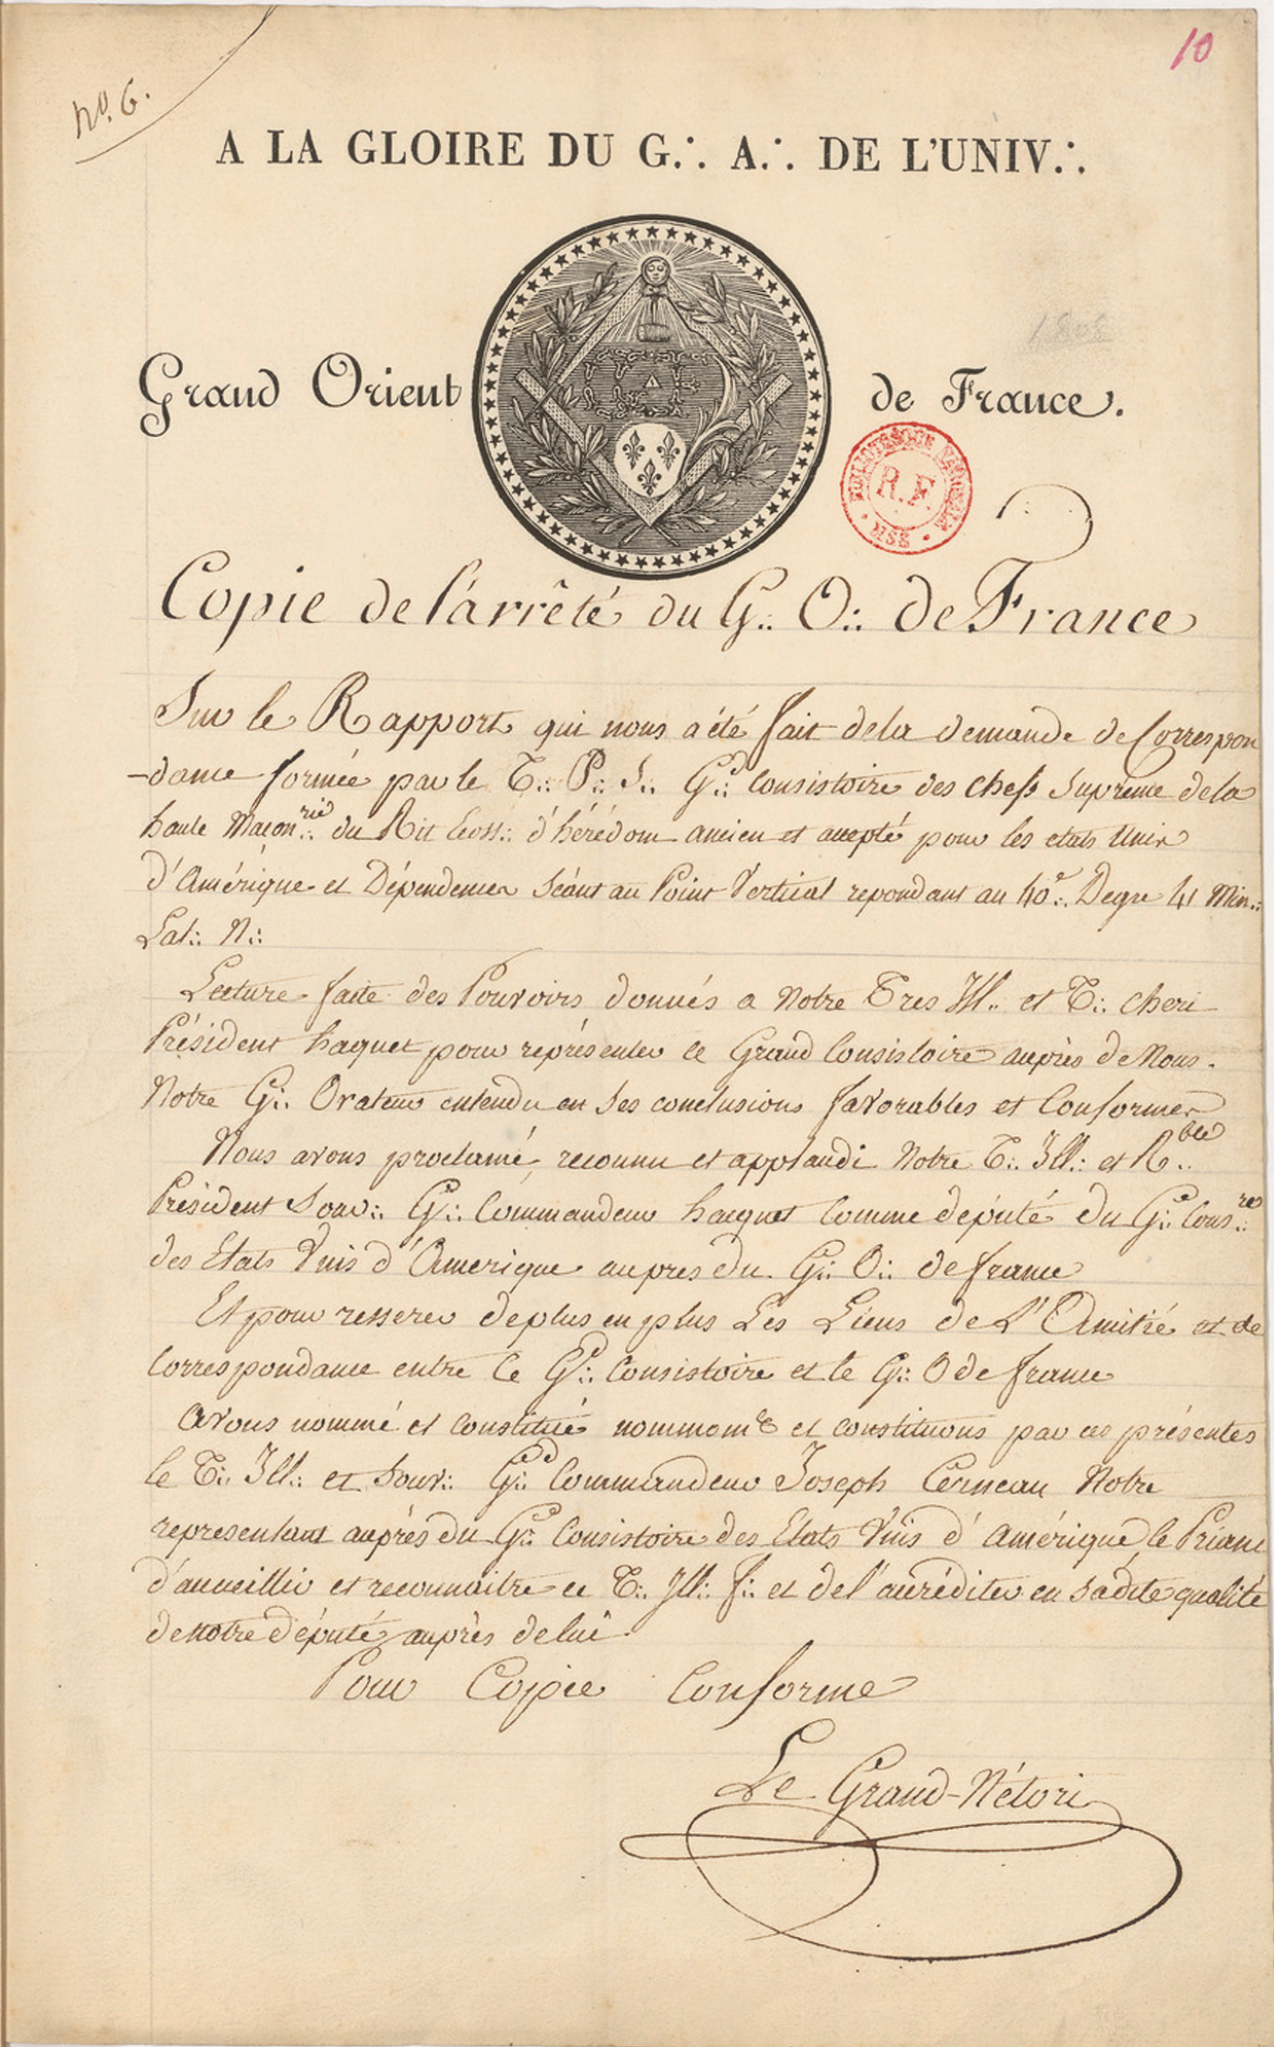 10
No. 6.
A LA GLOIRE DU G∴ A∴ DE L'UNIV∴
1808
Grand Orient de France.
BIBLIOTHEQUE NATIONALE
R.F.
MSS
Copie de l'arrêté du G∴ O∴ de France
Sur le Rapport qui nous a été fait de la demande de Correspon
-dance formée par le T∴ P∴ S∴ Gd∴ Consistoire des chefs Suprême de la
haute Maçonrie∴ du Rit Ecoss∴ d'hérédom ancien et accepté pour les etats Unis
d'Amérique et Dépendences Séant au Point Vertical repondant au 40e∴ Degre 41 Min∴
Lat∴ N∴
Lecture faite des Pouvoirs donnés a Notre Tres Ill∴ et T∴ cheri
Président hacquet pour représenter ce Grand Consistoire auprès de Nous.
Notre G∴ Orateur entendu en Ses conclusions favorables et Conformes
Nous avons proclamé, reconnu et applaudi Notre T∴ Ill∴ et R∴ble
Président Souv∴ Gd∴ Commandeur hacquet Comme député du Gd∴ Cons∴re
des Etats Unis d'Amerique aupres du G∴ O∴ de france
Et pour resserer de plus en plus Les Liens de L'Amitié et de
Correspondance entre Ce Gd∴ Consistoire et le G∴ O de france
Avons nommé et Constitué nommons et constituons par ces présentes
le T∴ Ill∴ et Souv∴ Gd∴ Commandeur Joseph Cerneau Notre
representant auprès du Gd∴ Consistoire des Etats Unis d'Amérique, le Priant
d'accueillir et reconnaitre ce T∴ Ill∴ f∴ et de l'accréditer en Sadite qualité
de notre député auprès de lui.
Pour Copie Conforme
Le Grand-Nétori